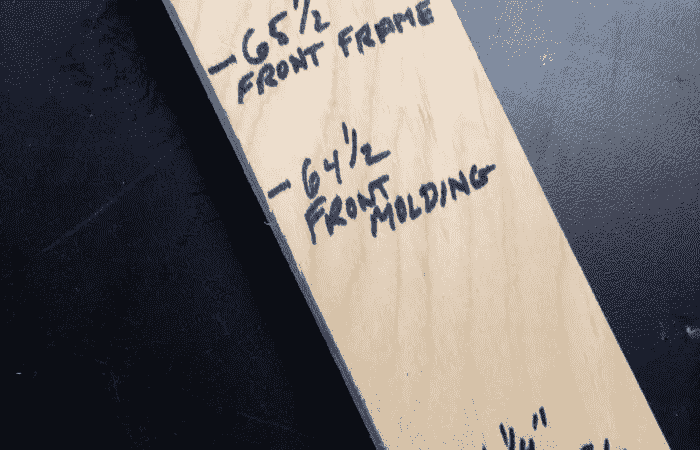 - 65 1/2
FRONT FRAME
- 64 1/2
FRONT
MOLDING
1/4"